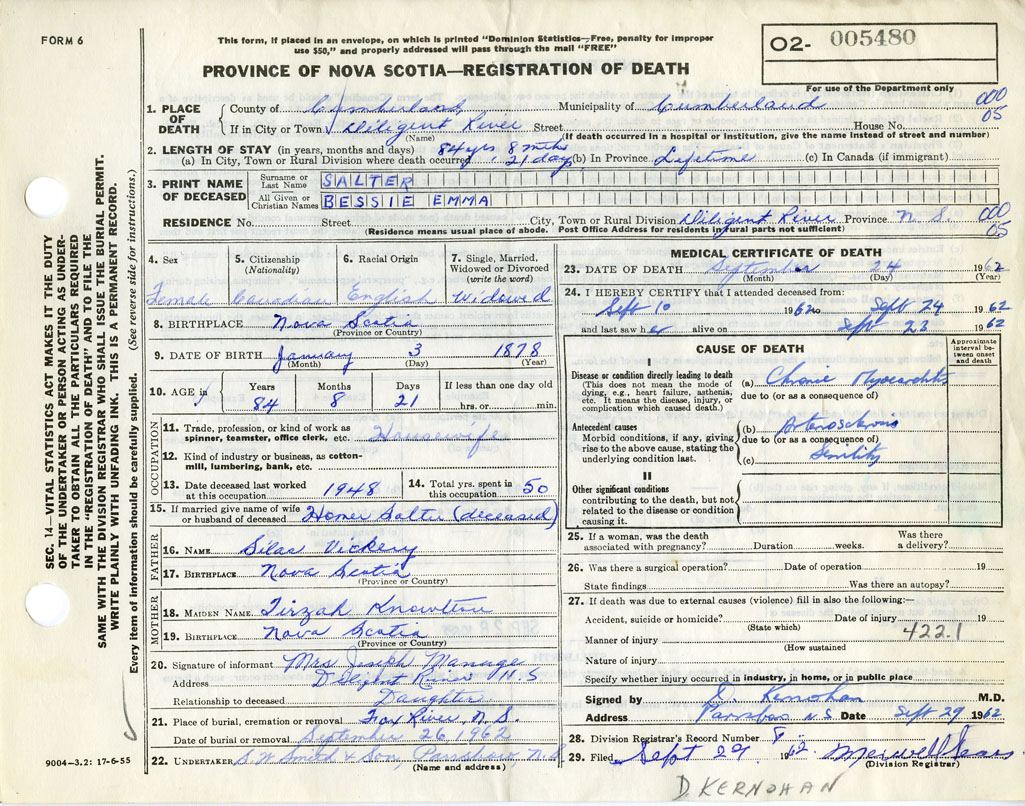 FORM 6
This form, if placed in an envelope, on which is printed "Dominion Statistics—Free, penalty for improper
use $50," and properly addressed will pass through the mail "FREE"
PROVINCE OF NOVA SCOTIA—REGISTRATION OF DEATH
O2- 005480
For use of the Department only
SEC. 14—VITAL STATISTICS ACT MAKES IT THE DUTY
OF THE UNDERTAKER OR PERSON ACTING AS UNDER-
TAKER TO OBTAIN ALL THE PARTICULARS REQUIRED
IN THE "REGISTRATION OF DEATH" AND TO FILE THE
SAME WITH THE DIVISION REGISTRAR WHO SHALL ISSUE THE BURIAL PERMIT.
WRITE PLAINLY WITH UNFADING INK. THIS IS A PERMANENT RECORD.
Every item of information should be carefully supplied. (See reverse side for instructions.)
1. PLACE OF DEATH County of Cumberland Municipality of Cumberland 000
If in City or Town Diligent River Street House No. 05
(Name) (If death occurred in a hospital or institution, give the name instead of street and number)
2. LENGTH OF STAY (in years, months and days) 84 yrs 8 mths
(a) In City, Town or Rural Division where death occurred 21 days (b) In Province Lifetime (c) In Canada (if immigrant)
3. PRINT NAME OF DECEASED Surname or Last Name SALTER
All Given or Christian Names BESSIE EMMA
RESIDENCE No. Street City, Town or Rural Division Diligent River Province N. S. 000
(Residence means usual place of abode. Post Office Address for residents in rural parts not sufficient) 05
4. Sex 5. Citizenship (Nationality) 6. Racial Origin 7. Single, Married, Widowed or Divorced (write the word)
Female Canadian English Widowed
8. BIRTHPLACE Nova Scotia
(Province or Country)
9. DATE OF BIRTH January 3 1878
(Month) (Day) (Year)
10. AGE in Years Months Days If less than one day old
84 8 21 hrs. or min.
OCCUPATION
11. Trade, profession, or kind of work as
spinner, teamster, office clerk, etc. Housewife
12. Kind of industry or business, as cotton-
mill, lumbering, bank, etc.
13. Date deceased last worked at this occupation 1948 14. Total yrs. spent in this occupation 50
15. If married give name of wife
or husband of deceased Homer Salter (deceased)
FATHER
16. NAME Silas Vickery
17. BIRTHPLACE Nova Scotia
(Province or Country)
MOTHER
18. MAIDEN NAME Tirzah Knowlton
19. BIRTHPLACE Nova Scotia
(Province or Country)
20. Signature of informant Mrs Joseph Manage
Address Diligent River N.S
Relationship to deceased Daughter
21. Place of burial, cremation or removal Fox River N. S.
Date of burial or removal September 26, 1962
22. UNDERTAKER S. W. Smith & Son,
(Name and address)
9004—3.2: 17-6-55
MEDICAL CERTIFICATE OF DEATH
23. DATE OF DEATH September 24 1962
(Month) (Day) (Year)
24. I HEREBY CERTIFY that I attended deceased from:
Sept 10 1962 to Sept 24 1962
and last saw her alive on Sept 23 1962
CAUSE OF DEATH
Approximate interval between onset and death
I
Disease or condition directly leading to death
(This does not mean the mode of
dying, e.g., heart failure, asthenia,
etc. It means the disease, injury, or
complication which caused death.)
(a) Chronic Myocarditis
due to (or as a consequence of)
Antecedent causes
Morbid conditions, if any, giving
rise to the above cause, stating the
underlying condition last.
(b) Arteriosclerosis
due to (or as a consequence of)
(c) Senility
II
Other significant conditions
contributing to the death, but not
related to the disease or condition
causing it.
25. If a woman, was the death
associated with pregnancy? Duration weeks. Was there a delivery?
26. Was there a surgical operation? Date of operation 19
State findings Was there an autopsy?
27. If death was due to external causes (violence) fill in also the following:—
Accident, suicide or homicide? Date of injury 19
(State which) 422.1
Manner of injury
(How sustained
Nature of injury
Specify whether injury occurred in industry, in home, or in public place
Signed by D. Kernohan M.D.
Address Parrsboro N S Date Sept 29 1962
28. Division Registrar's Record Number 8
29. Filed Sept 29 1962
(Division Registrar)
D KERNOHAN